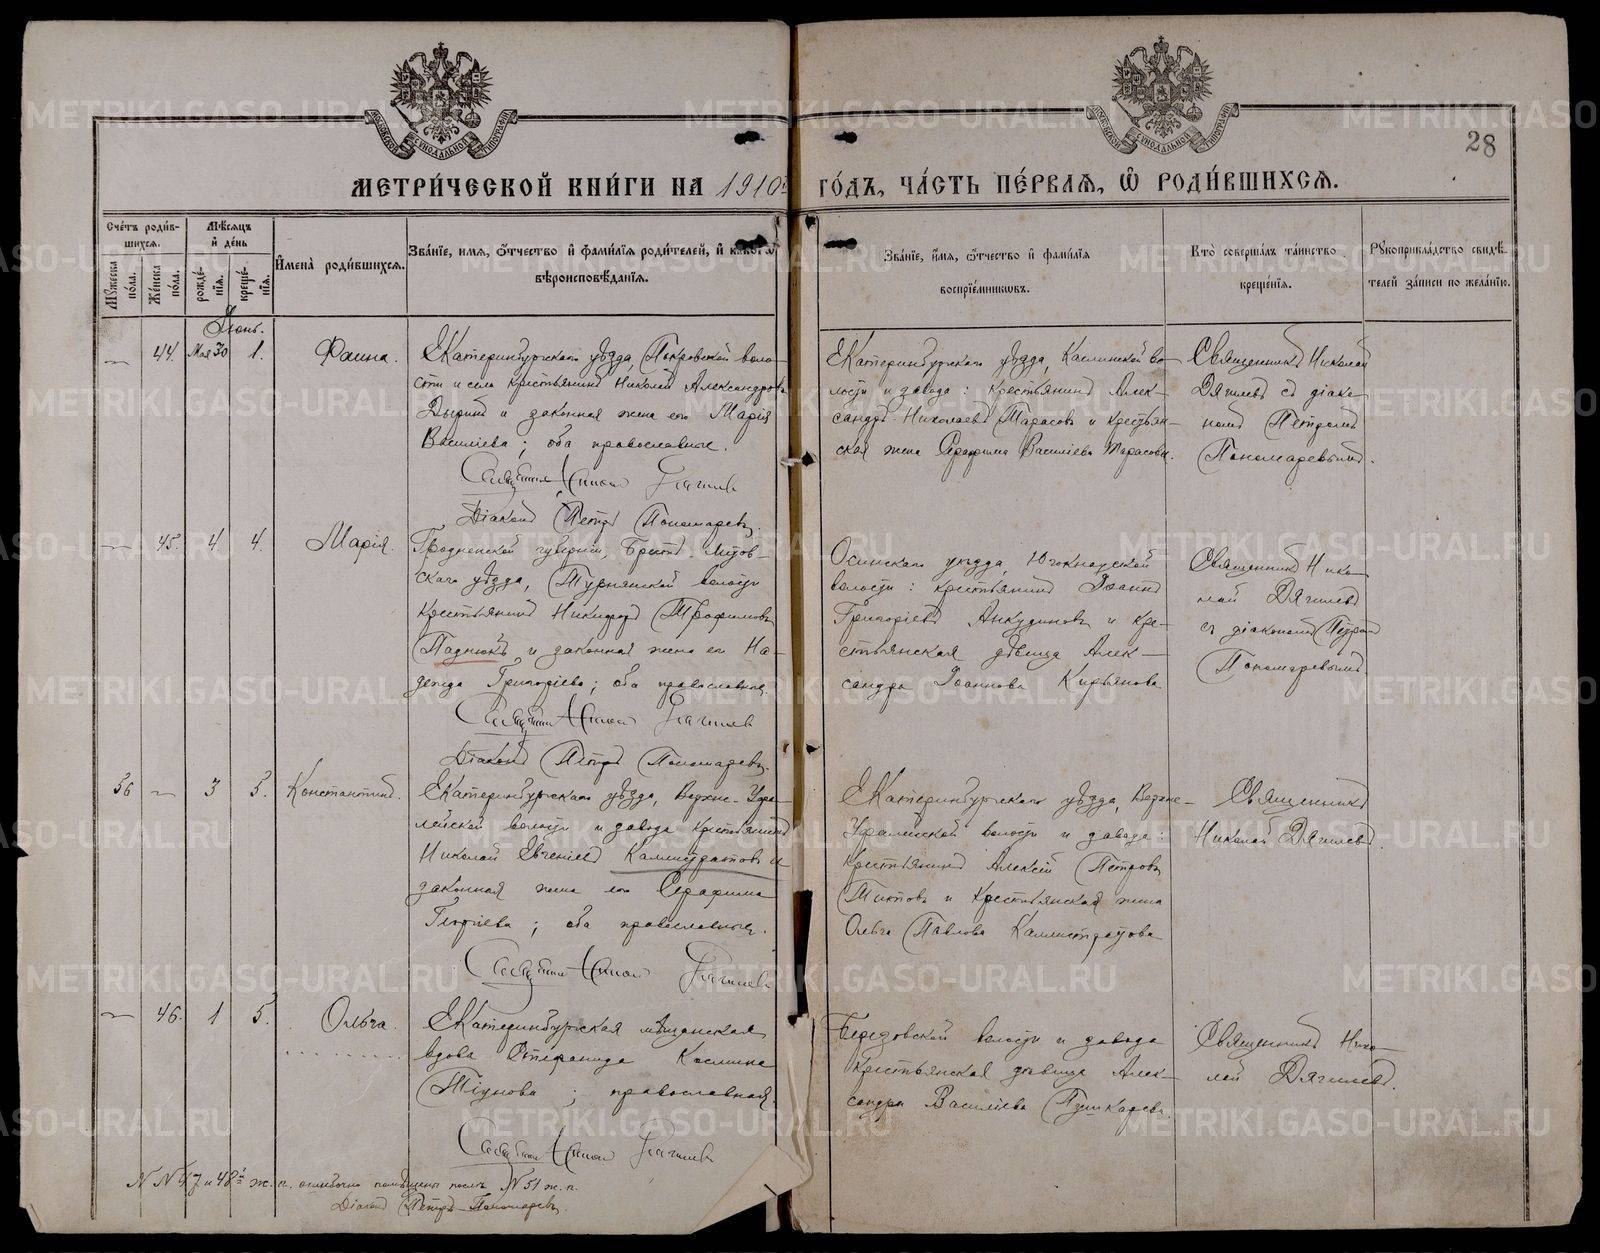 МОСКОВСКОЙ СѴНОДАЛЬНОЙ ТИПОГРАФІИ
МОСКОВСКОЙ СѴНОДАЛЬНОЙ ТИПОГРАФІИ
28
МЕТРИ́ЧЕСКОЙ КНИ́ГИ НА 1910й ГО́ДЪ, ЧА́СТЬ ПЕ́РВАЯ, Ѿ РОДИ́ВШИХСЯ.
Сче́тъ роди́в-
шихся.
Мѣсяцъ
и҆ де́нь
Му́жеска по́ла.
Же́нска по́ла.
рожде́-
нїя.
креще́-
нїя.
И҆мена̀ роди́вшихся.
Зва́нїе, и҆мя, ѻ҆́тчество и҆ фами́лїя роди́телей, и҆ како́гѡ
вѣроисповѣ́данїя.
Зва́нїе, и҆́мя, ѻ҆́тчество и҆ фами́лїя
воспрїе́мникѡвъ.
Кто̀ соверша́лъ та́инство
креще́нїя.
Рꙋкоприкла́дство свидѣ́-
телей за́писи по жела́нїю.
Іюнь.
— 44. Мая 30 1. Фаина.
Екатеринбургскаго уѣзда, Покровской воло-
сти и села крестьянинъ Николай Александровъ
Дыринъ и законная жена его Марія
Василіева; оба православные.
Священникъ Николай Дягилевъ
Діаконъ Петръ Пономаревъ.
Екатеринбургскаго уѣзда, Каслинской во-
лости и завода: крестьянинъ Алек-
сандръ Николаевъ Тарасовъ и крестьян-
ская жена Серафима Василіева Тарасова.
Священникъ Николай
Дягилевъ съ діако-
номъ Петромъ
Пономаревымъ.
— 45. 4. 4. Марія.
Гродненской губерніи, Брестъ-Литов-
скаго уѣзда, волости
крестьянинъ Никифоръ Трофимовъ
Паднюкъ и законная жена его На-
дежда Григоріева; оба православные.
Священникъ Николай Дягилевъ
Діаконъ Петръ Пономаревъ.
Осинскаго уѣзда,
волости: крестьянинъ Іоаннъ
Григоріевъ Анкудиновъ и кре-
стьянская дѣвица Алек-
сандра Іоаннова Кирьянова
Священникъ Нико-
лай Дягилевъ
съ діакономъ Петромъ
Пономаревымъ
56 — 3 5. Константинъ.
Екатеринбургскаго уѣзда, Верхне-Уфа-
лейской волости и завода крестьянинъ
Николай Евгеніевъ Каллистратовъ и
законная жена его Серафима
Георгіева; оба православные.
Священникъ Николай Дягилевъ
Екатеринбургскаго уѣзда, Верхне-
Уфалейской волости и завода:
крестьянинъ Алексій Петровъ
Титовъ и крестьянская жена
Ольга Павлова Каллистратова
Священникъ
Николай Дягилевъ.
— 46. 1 5. Ольга.
Екатеринбургская мѣщанская
вдова Стефанида Космина
Тіунова; православная.
Священникъ Николай Дягилевъ
Березовской волости и завода
крестьянская дѣвица Алек-
сандра Василіева Пушкарева.
Священникъ Нико-
лай Дягилевъ.
N N 47 и 48й ж. п. ошибочно помѣщены послѣ N 51 ж. п.
Діаконъ Петръ Пономаревъ.
METRIKI.GASO-URAL.RU